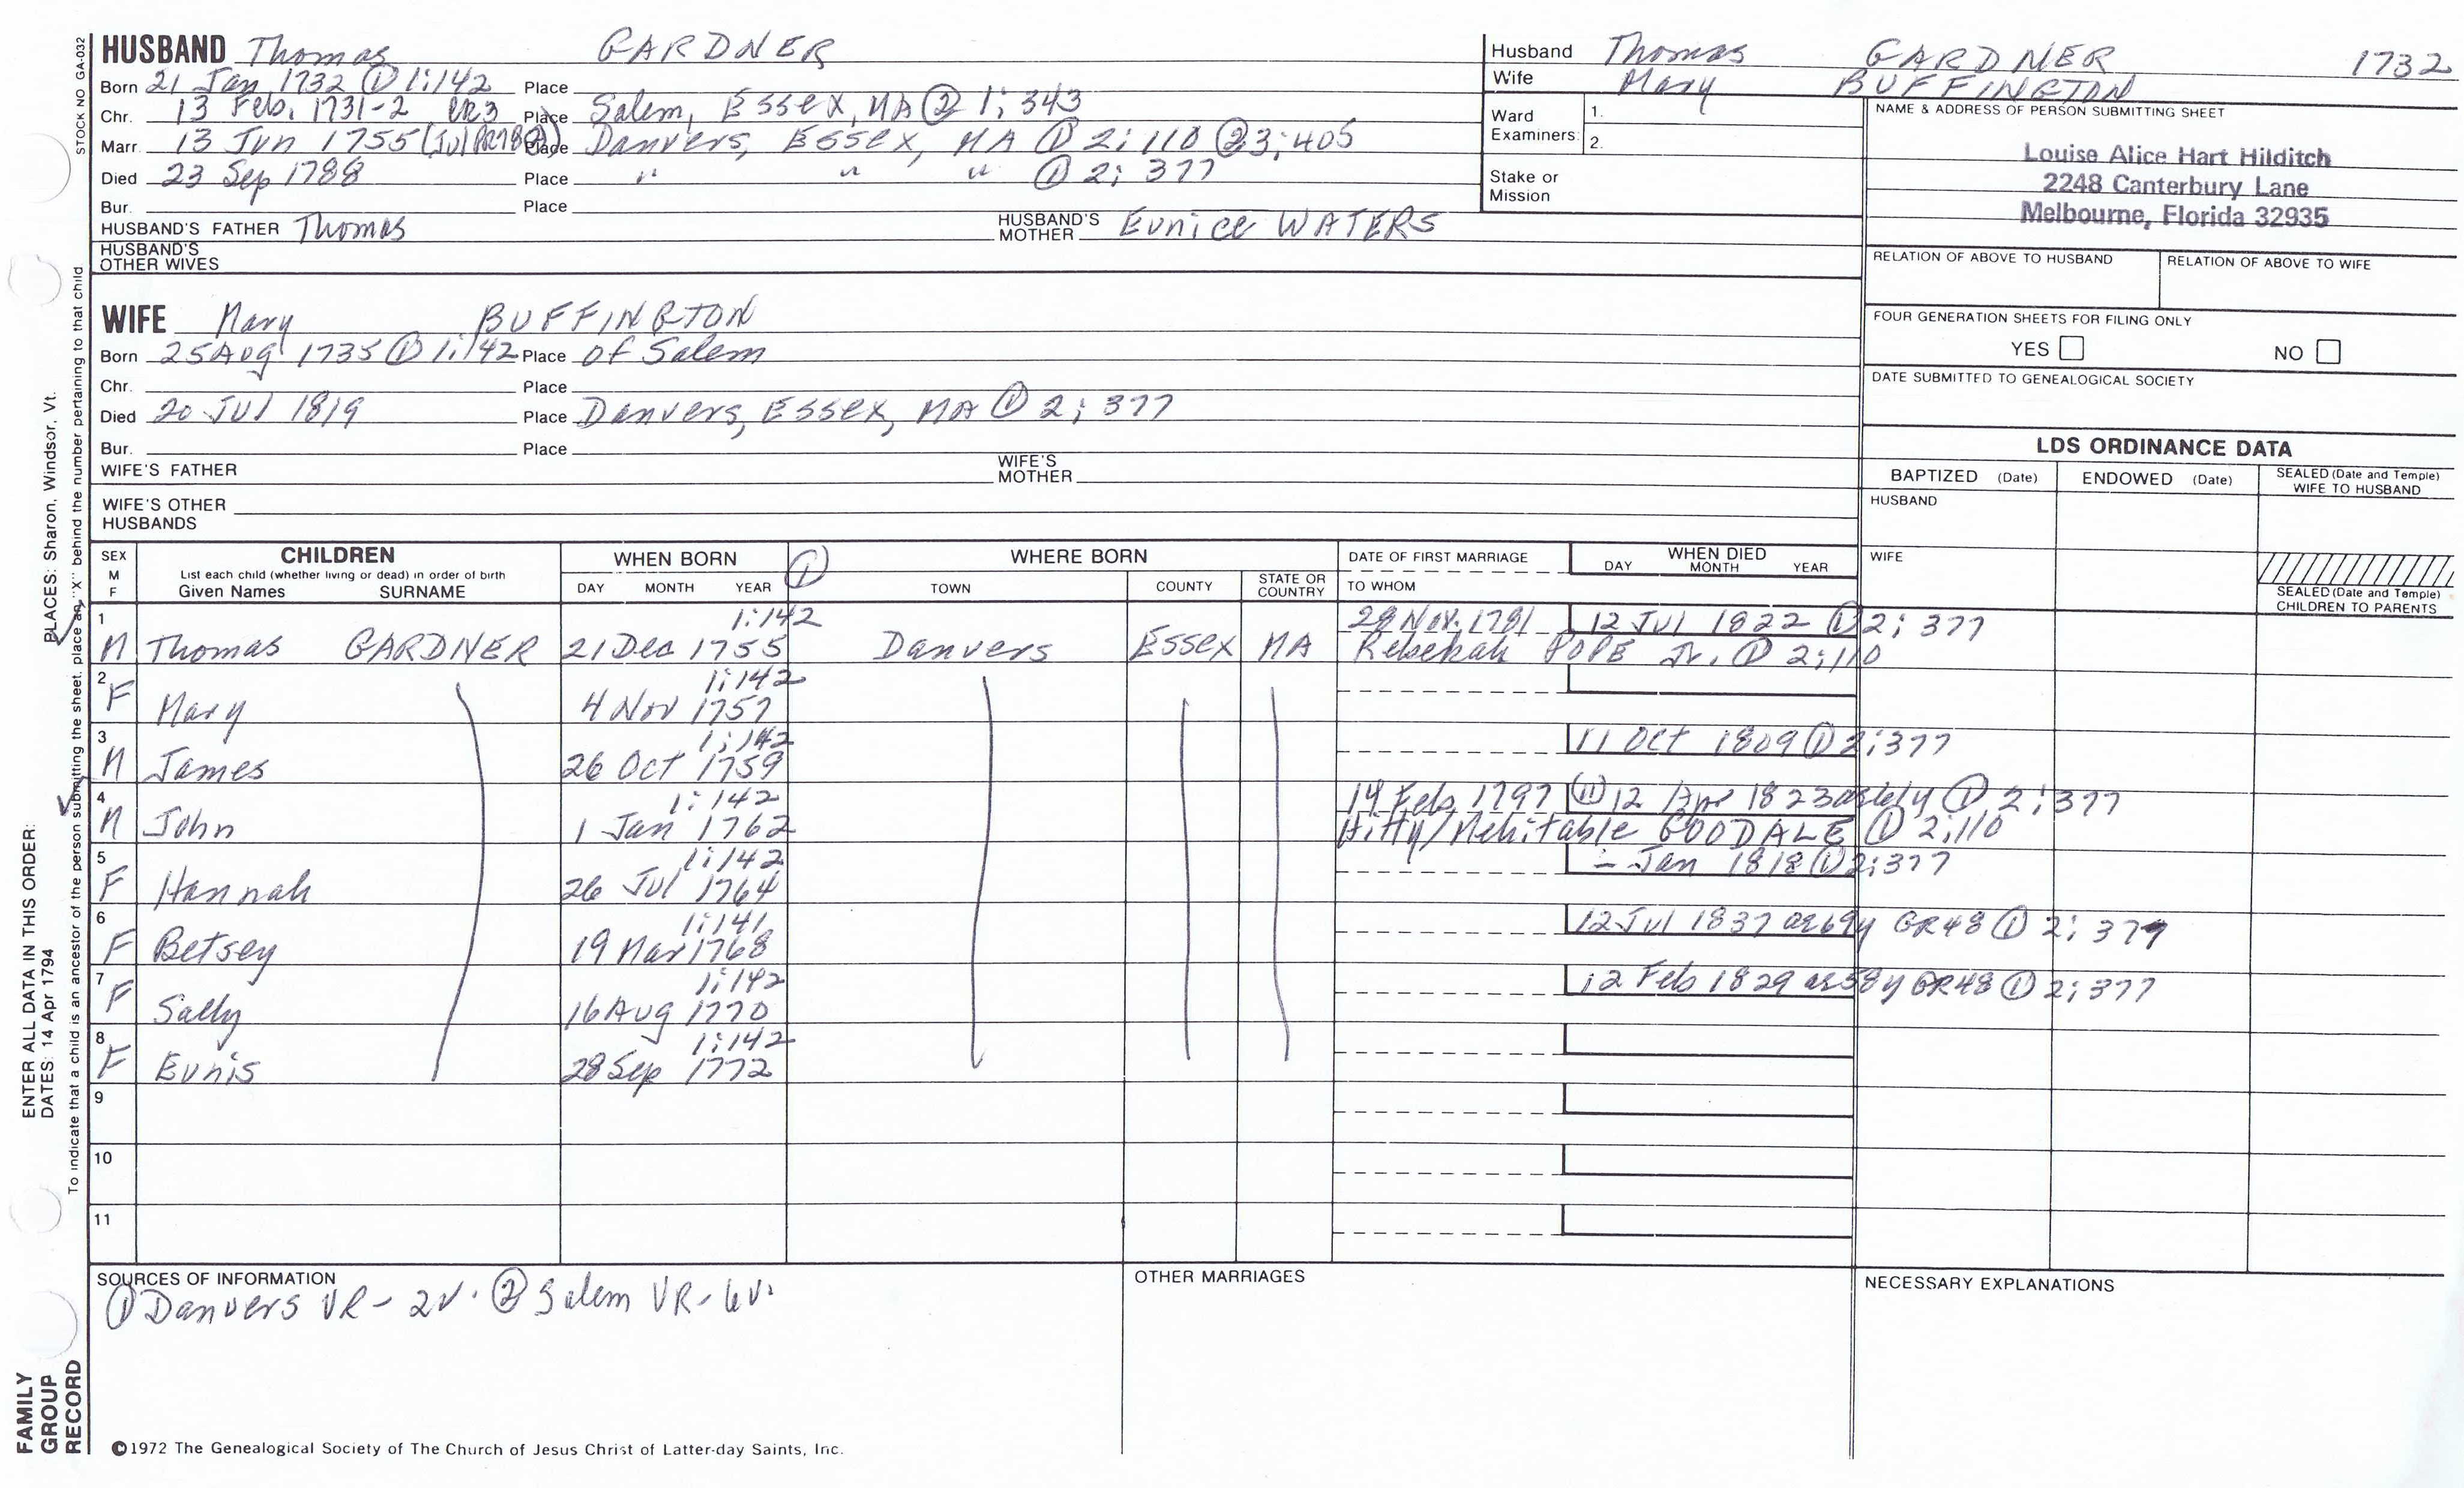 HUSBAND Thomas GARDNER
Born 21 Jan 1732 ① 1:142 Place
Chr. 13 Feb. 1731-2 CR3 Place Salem, Essex, MA ② 1; 343
Marr. 13 Jun 1755 (Jul Place Danvers, Essex, MA ① 2; 110 ② 3; 405
Died 23 Sep 1788 Place " " " ① 2; 377
Bur. Place
HUSBAND'S FATHER Thomas HUSBAND'S MOTHER Eunice WATERS
HUSBAND'S OTHER WIVES
WIFE Mary BUFFINGTON
Born 25 Aug 1735 ① 1:142 Place of Salem
Chr. Place
Died 20 Jul 1819 Place Danvers, Essex, MA ① 2; 377
Bur. Place
WIFE'S FATHER WIFE'S MOTHER
WIFE'S OTHER HUSBANDS
Husband Thomas GARDNER 1732
Wife Mary BUFFINGTON
Ward Examiners: 1.
2.
Stake or Mission
NAME & ADDRESS OF PERSON SUBMITTING SHEET
Louise Alice Hart Hilditch
2248 Canterbury Lane
Melbourne, Florida 32935
RELATION OF ABOVE TO HUSBAND RELATION OF ABOVE TO WIFE
FOUR GENERATION SHEETS FOR FILING ONLY
YES NO
DATE SUBMITTED TO GENEALOGICAL SOCIETY
LDS ORDINANCE DATA
BAPTIZED (Date) ENDOWED (Date) SEALED (Date and Temple) WIFE TO HUSBAND
HUSBAND
WIFE
SEALED (Date and Temple) CHILDREN TO PARENTS
SEX M F CHILDREN WHEN BORN ① WHERE BORN DATE OF FIRST MARRIAGE WHEN DIED
List each child (whether living or dead) in order of birth
Given Names SURNAME DAY MONTH YEAR TOWN COUNTY STATE OR COUNTRY TO WHOM DAY MONTH YEAR
1 1:142 28 Nov. 1781 12 Jul 1822 ① 2; 377
M Thomas GARDNER 21 Dec 1755 Danvers Essex MA Rebekah POPE Jr. ① 2;110
2 1:142
F Mary 4 Nov 1757
3 1:142 11 Oct 1809 ① 2;377
M James 26 Oct 1759
4 1:142 14 Feb 1797 12 Apr 1823 ae 61y ① 2; 377
M John 1 Jan 1762 Hitty/Mehitable GOODALE ① 2;110
5 1:142 - Jan 1818 ① 2;377
F Hannah 26 Jul 1764
6 1:141 12 Jul 1837 ae 69y GR48 ① 2; 377
F Betsey 19 Mar 1768
7 1:142 12 Feb 1829 ae 58y GR48 ① 2; 377
F Sally 16 Aug 1770
8 1:142
F Eunis 28 Sep 1772
9
10
11
SOURCES OF INFORMATION
① Danvers VR - 2V. ② Salem VR - 6V.
OTHER MARRIAGES
NECESSARY EXPLANATIONS
©1972 The Genealogical Society of The Church of Jesus Christ of Latter-day Saints, Inc.
STOCK NO GA-032
To indicate that a child is an ancestor of the person submitting the sheet, place an "X" behind the number pertaining to that child
ENTER ALL DATA IN THIS ORDER:
DATES: 14 Apr 1794 PLACES: Sharon, Windsor, Vt.
FAMILY
GROUP
RECORD